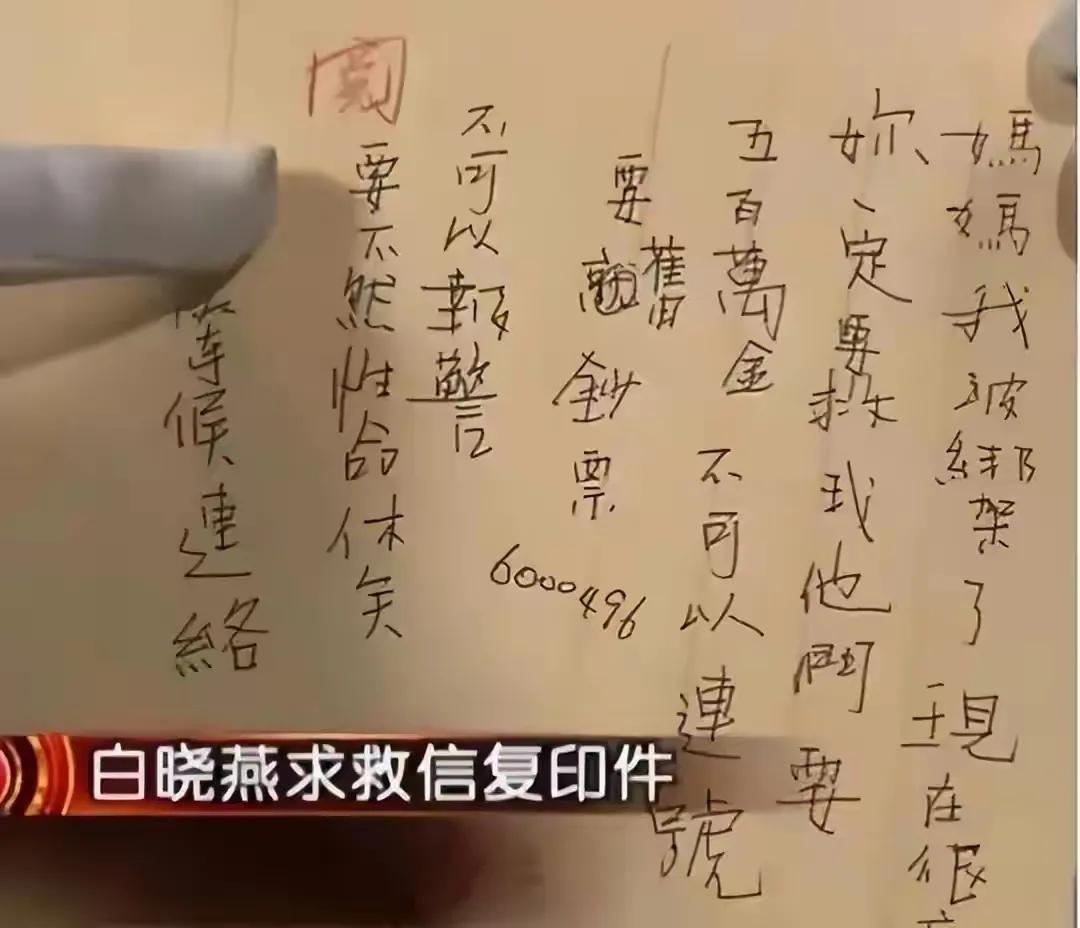 媽媽我被綁架了現在很
妳一定要救我他們要
五百萬金不可以連號
要舊鈔票
6000496
不可以報警
要不然性命休矣
候連絡
白晓燕求救信复印件